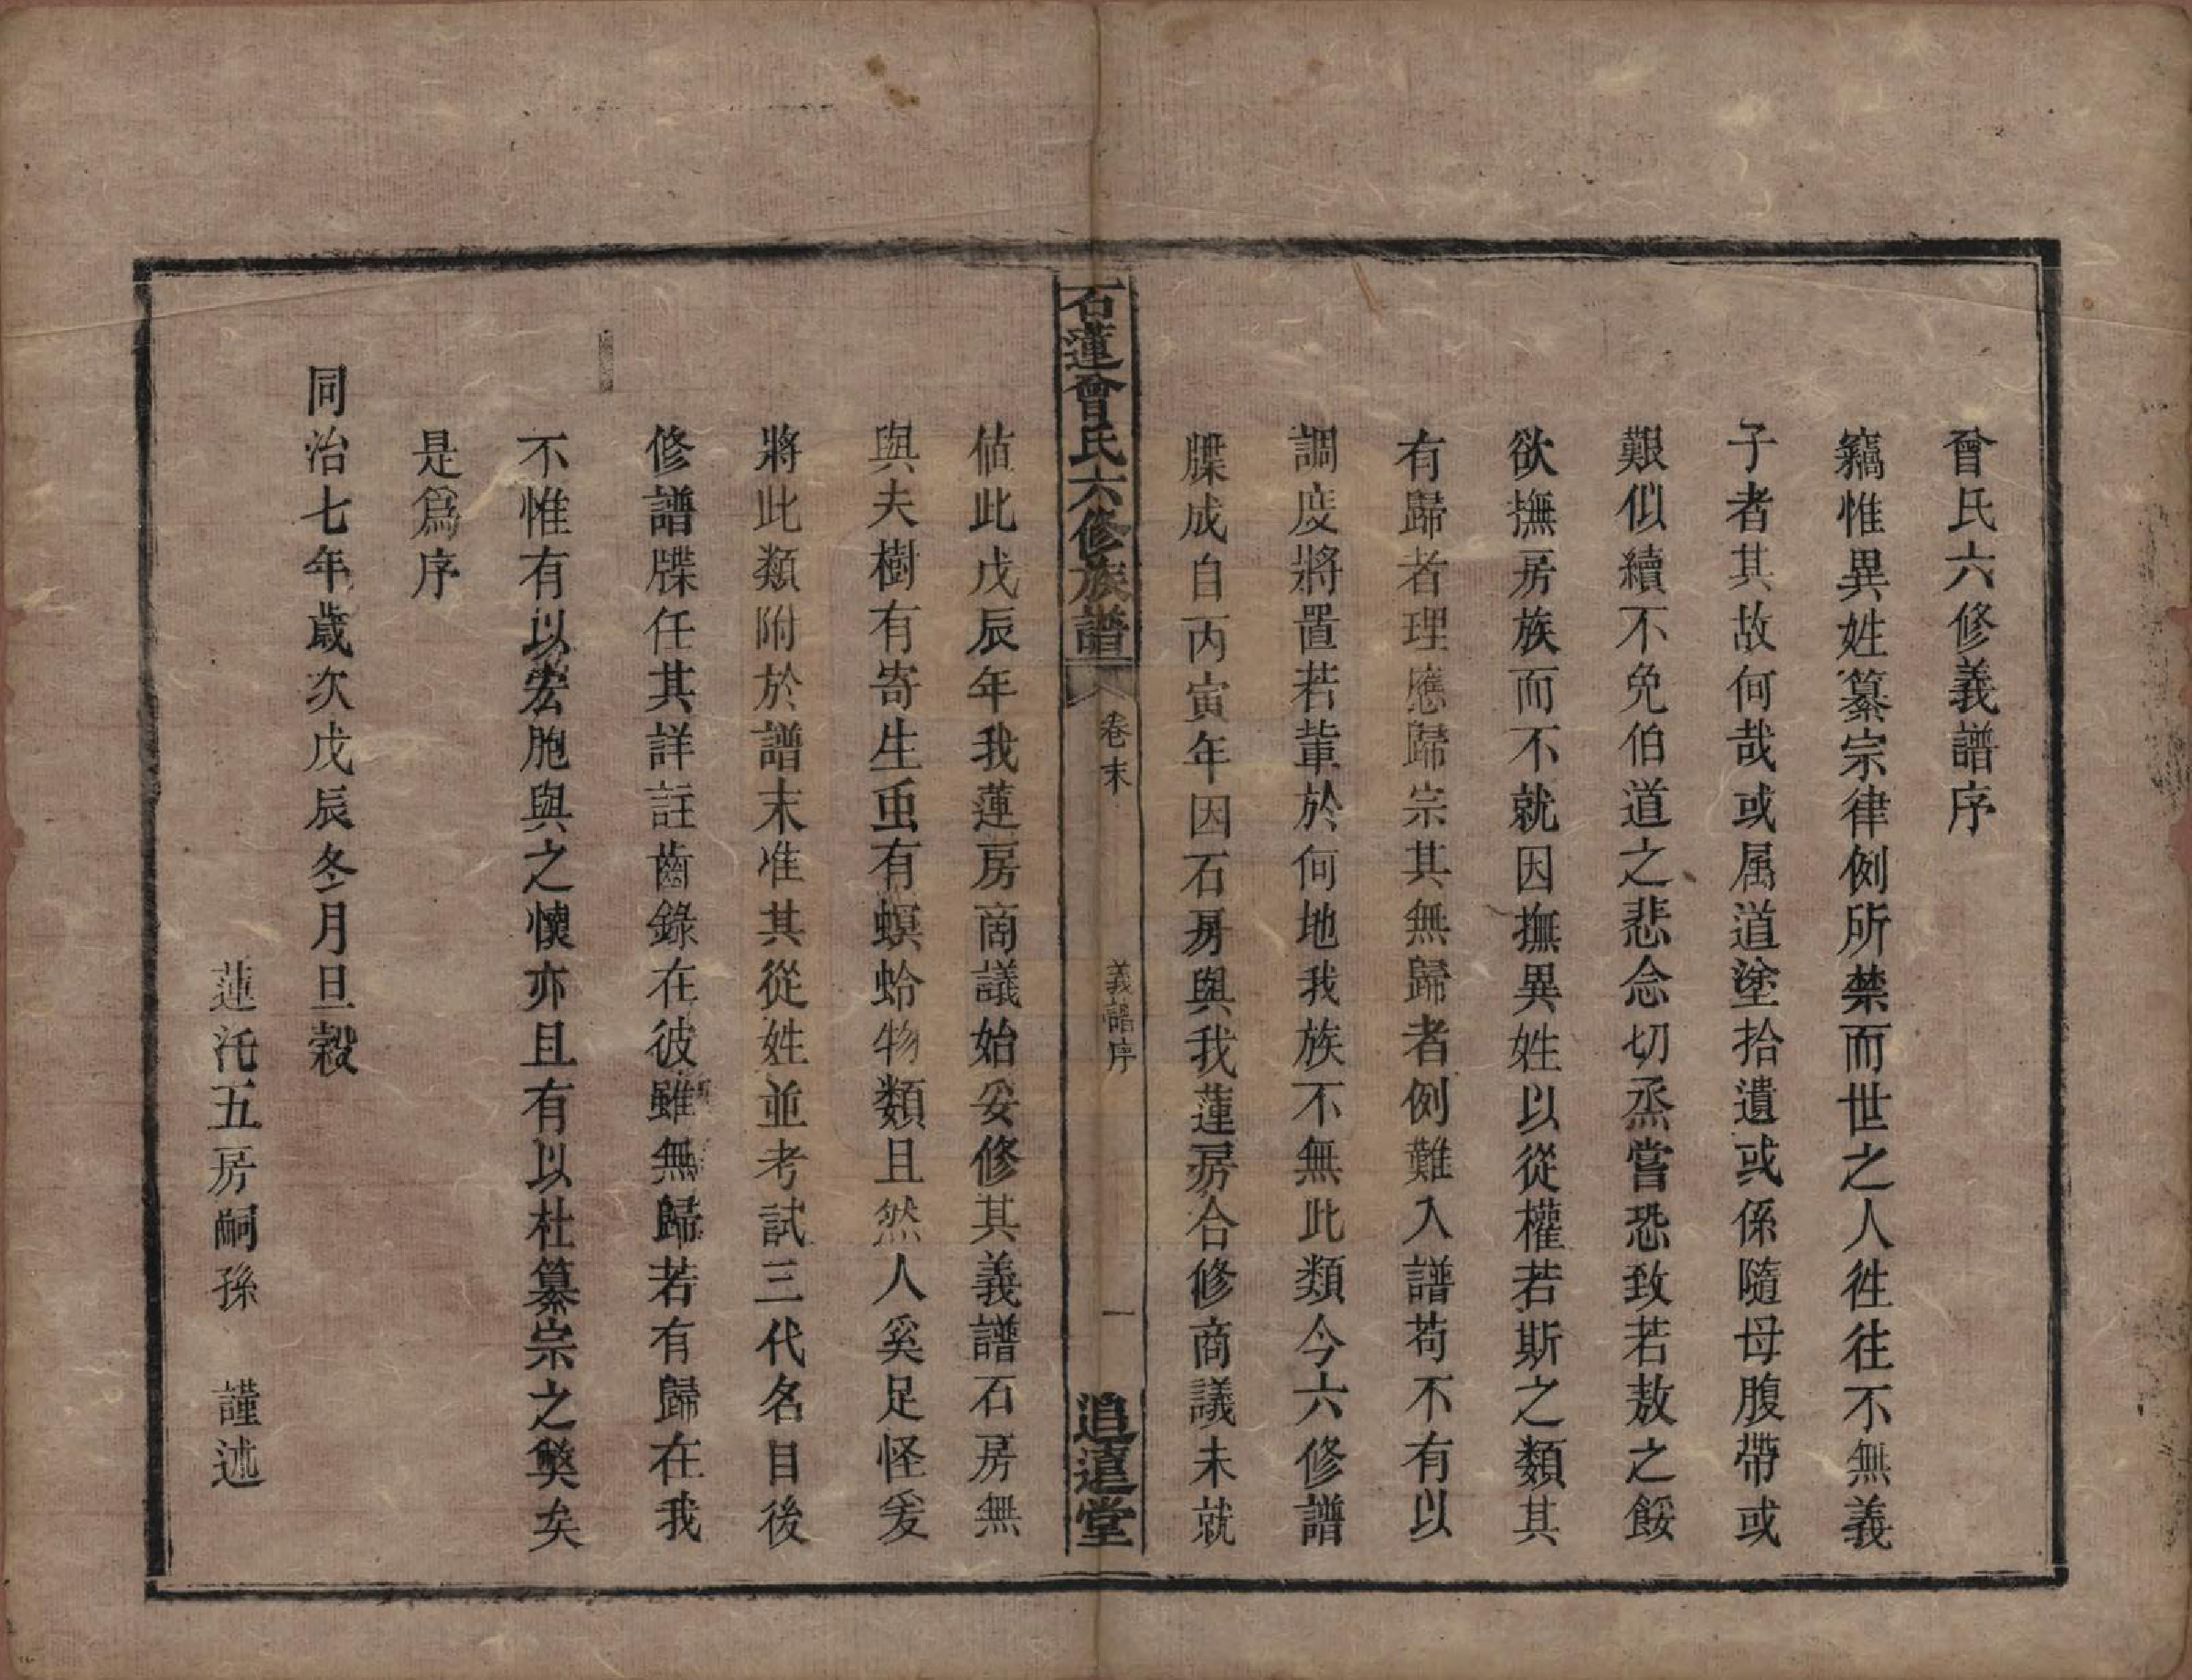 曾氏六修義譜序
竊惟異姓纂宗律例所禁而世之人徃往不無義
子者其故何哉或属道塗拾遺或係隨母腹帶或
艱似續不免伯道之悲念切烝嘗恐致若敖之餒
欲撫房族而不就因撫異姓以從權若斯之類其
有歸者理應歸宗其無歸者例難入譜苟不有以
調度將置若輩於何地我族不無此類今六修譜
牒成自丙寅年因石房與我蓮房合修商議未就
石蓮曾氏六修族譜 卷末 義譜序 一 追遠堂
値此戊辰年我蓮房商議始妥修其義譜石房無
與夫樹有寄生虫有螟蛉物類且然人奚足怪爰
將此類附於譜末准其從姓並考試三代名目後
修譜牒任其詳註齒錄在彼雖無歸若有歸在我
不惟有以宏胞與之懷亦且有以杜纂宗之獘矣
是爲序
同治七年歲次戊辰冬月旦穀
蓮沱五房嗣孫 謹述